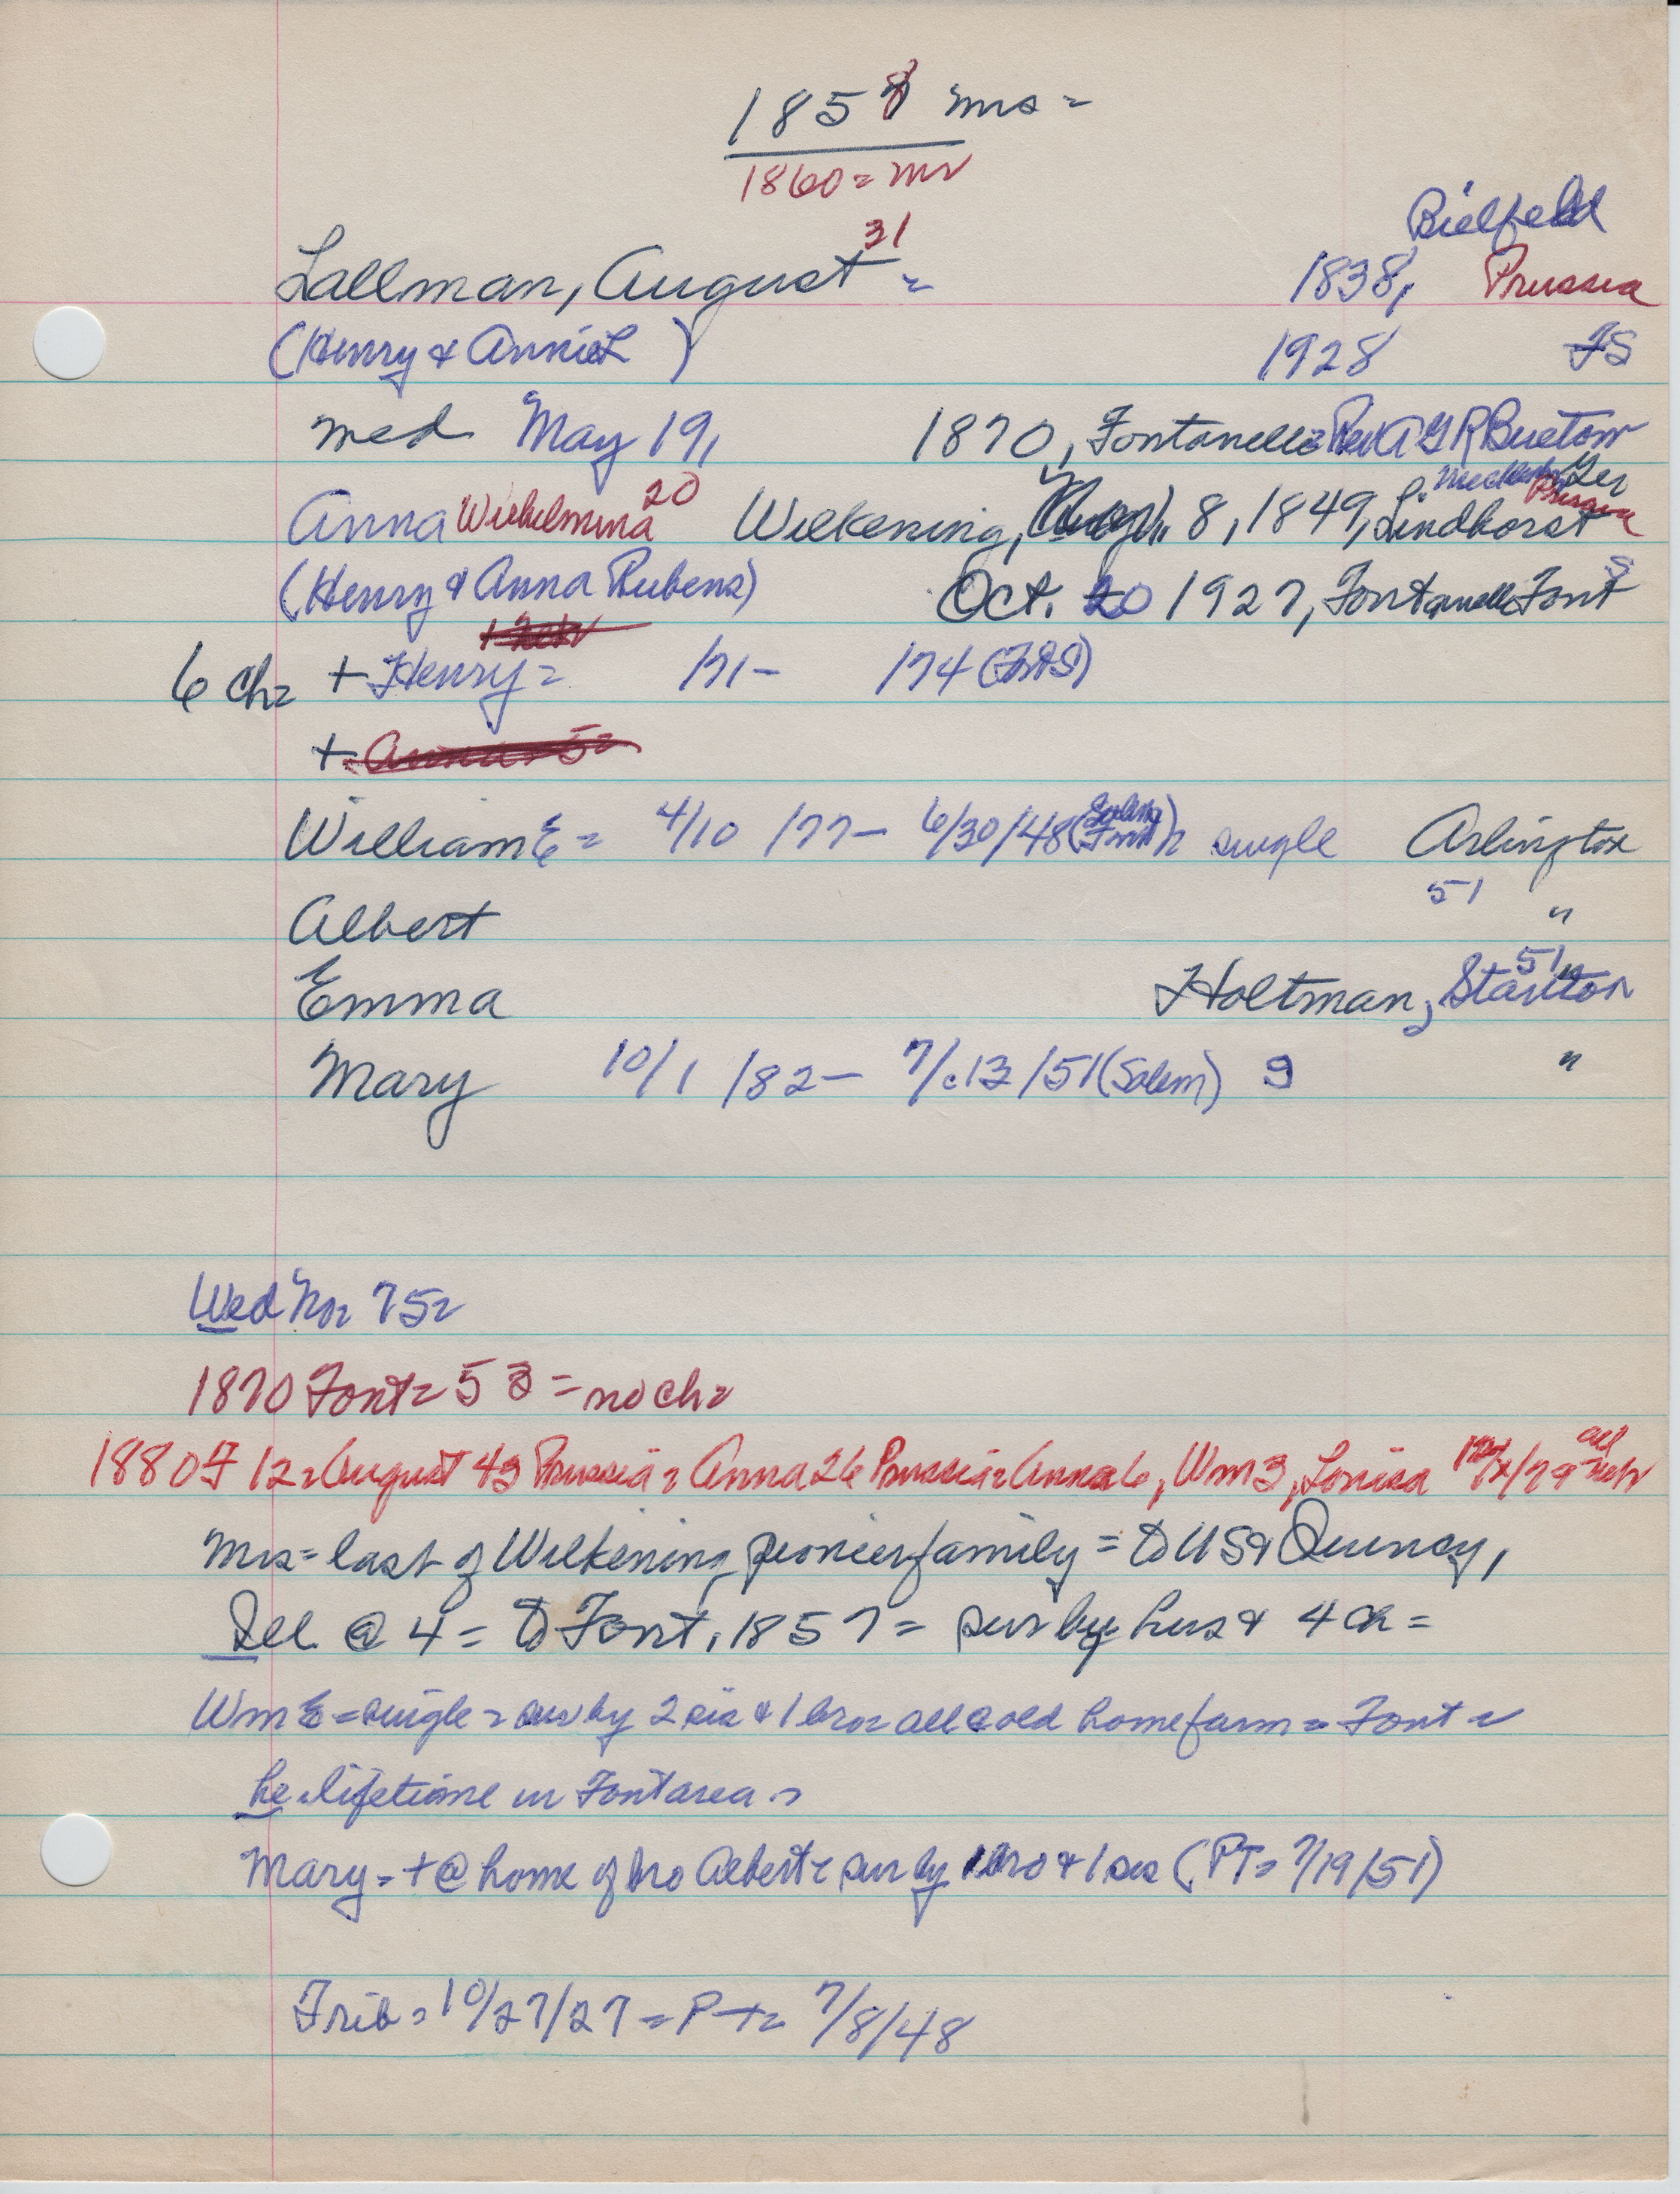 1858 mrs =
1860 = mr
Bielfeld
Lallman, August 31 = 1838, Prussia
(Henry & Annie L ) 1928 FS
med May 19, 1870, Fontanelle = Rev A G R Buetow
Anna Wilhelmina 20 Wilkening, 8, 1849, Lindhorst Ger Prussia
(Henry & Anna Rubens) Oct. 20 1927, Fontanelle, Font S
6 ch = + Henry = /71 - /74 (FntS)
+
William E = 4/10 /77 - 6/30/48 (Salem Font) = single Arlington
Albert 51 "
Emma Holtman, Stanton 51 "
Mary 10/1 /82 - 7/13/51 (Salem) S "
Wed No = 75 =
1870 Font = 53 = no ch =
1880 F 12 = August 43 Prussia = Anna 26 Prussia = Anna 6, Wm 3, Louisa all Neb
Mrs = last of Wilkening pioneer family = to US & Quincy,
Ill. @ 4 = to Font. 1857 = sur by hus & 4 ch =
Wm E = single = sur by 2 sis & 1 bro = all @ old home farm = Font =
he = lifetime in Font area =
Mary = + @ home of bro Albert = sur by 1 bro & 1 sis (PT = 7/19/51)
Trib = 10/27/27 = P-T = 7/8/48